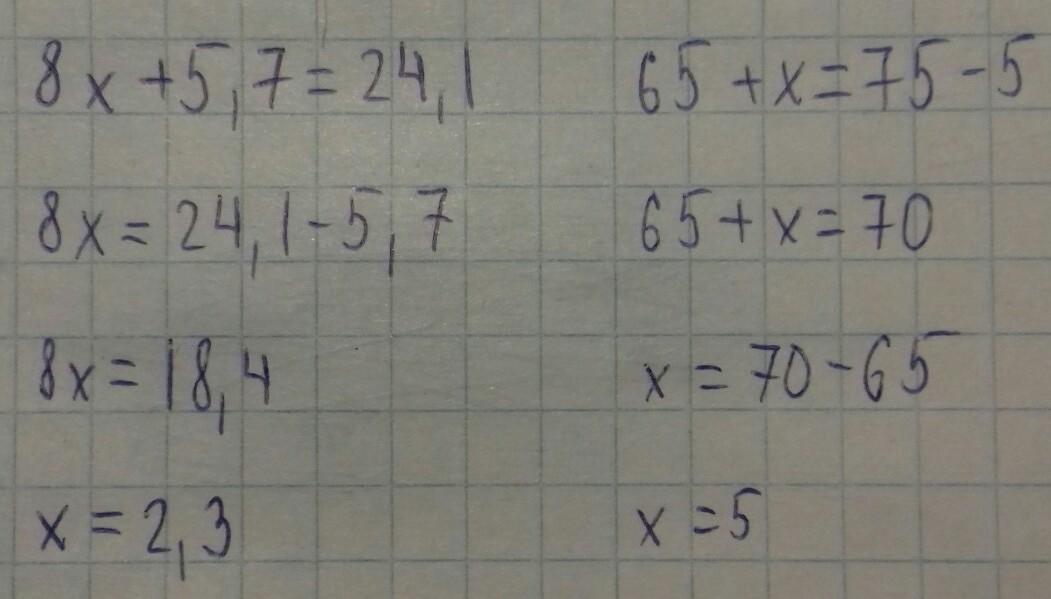 8x+5,7=24,1
8x=24,1-5,7
8x=18,4
x=2,3
65+x=75-5
65+x=70
x=70-65
x=5